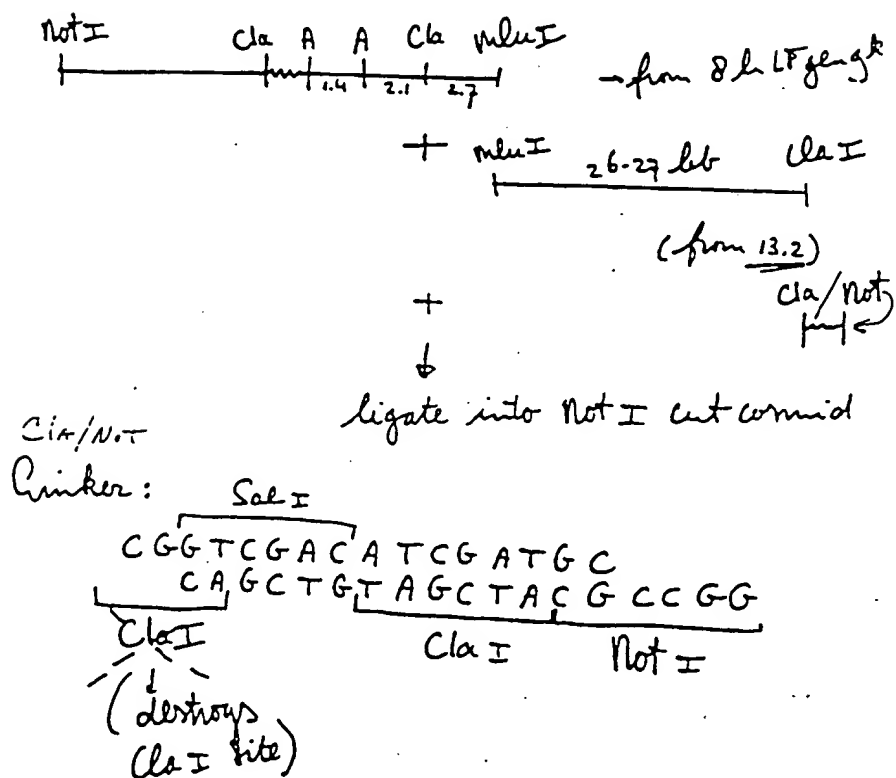 Not I Cla A A Cla Mlu I
1.4 2.1 2.7
+ Mlu I 26-27 kb Cla I
(from 13.2)
+ Cla/Not
ligate into Not I cut cosmid
Cla/Not
Linker:
Sal I
C G G T C G A C A T C G A T G C
C A G C T G T A G C T A C G C C G G
Cla I Cla I Not I
(destroys
Cla I site)